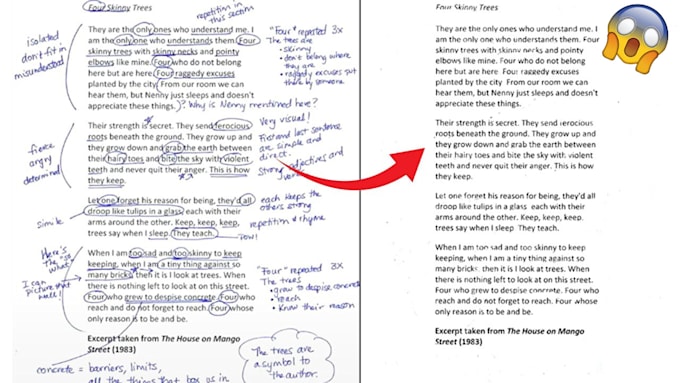 Four Skinny Trees
repetition in
this section
They are the only ones who understand me. I
am the only one who understands them. Four
skinny trees with skinny necks and pointy
elbows like mine. Four who do not belong
here but are here. Four raggedy excuses
planted by the city. From our room we can
hear them, but Nenny just sleeps and doesn't
appreciate these things.
? Why is Nenny mentioned here?
isolated
don't fit in
misunderstood
"Four" repeated 3x
The trees are
• skinny
• don't belong where
they are
• raggedy excuses put
there by someone
Their strength is secret. They send ferocious
roots beneath the ground. They grow up and
they grow down and grab the earth between
their hairy toes and bite the sky with violent
teeth and never quit their anger. This is how
they keep.
fierce
angry
determined
Very visual!
First and last sentence
are simple and
direct.
Strong adjectives and
verbs
Let one forget his reason for being, they'd all
droop like tulips in a glass, each with their
arms around the other. Keep, keep, keep,
trees say when I sleep. They teach.
simile
each keeps the
others strong
repetition & rhyme
Wow!
When I am too sad and too skinny to keep
keeping, when I am a tiny thing against so
many bricks, then it is I look at trees. When
there is nothing left to look at on this street.
Four who grew to despise concrete. Four who
reach and do not forget to reach. Four whose
only reason is to be and be.
Here's
the "so
what"
I can
picture that
well!
"Four" repeated 3X
The trees
• grew to despise concrete
• reach
• know their reason
Excerpt taken from The House on Mango
Street (1983)
concrete = barriers, limits,
all the things that box us in
The trees are
a symbol to
the author.
Four Skinny Trees
They are the only ones who understand me. I
am the only one who understands them. Four
skinny trees with skinny necks and pointy
elbows like mine. Four who do not belong
here but are here. Four raggedy excuses
planted by the city. From our room we can
hear them, but Nenny just sleeps and doesn't
appreciate these things.
Their strength is secret. They send ferocious
roots beneath the ground. They grow up and
they grow down and grab the earth between
their hairy toes and bite the sky with violent
teeth and never quit their anger. This is how
they keep.
Let one forget his reason for being, they'd all
droop like tulips in a glass, each with their
arms around the other. Keep, keep, keep,
trees say when I sleep. They teach.
When I am too sad and too skinny to keep
keeping, when I am a tiny thing against so
many bricks, then it is I look at trees. When
there is nothing left to look at on this street.
Four who grew to despise concrete. Four who
reach and do not forget to reach. Four whose
only reason is to be and be.
Excerpt taken from The House on Mango
Street (1983)